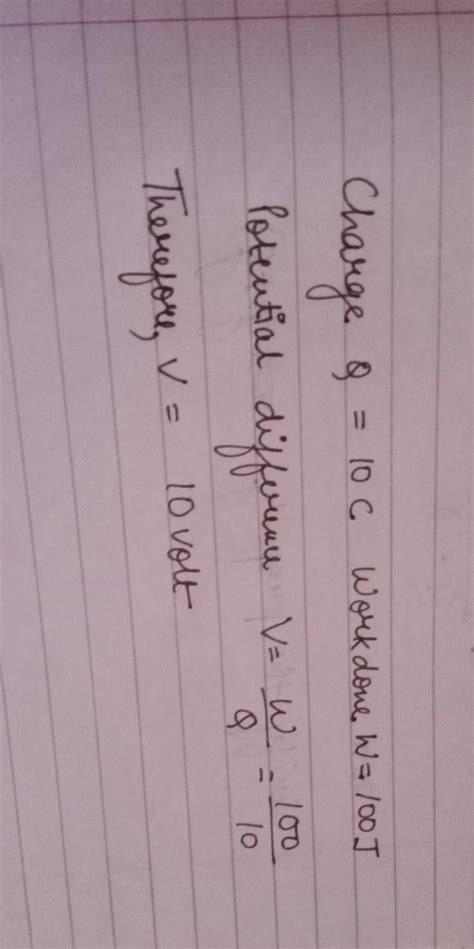 Charge Q = 10 C Workdone W = 100J
Potential difference V = W/Q = 100/10
Therefore, V = 10 volt